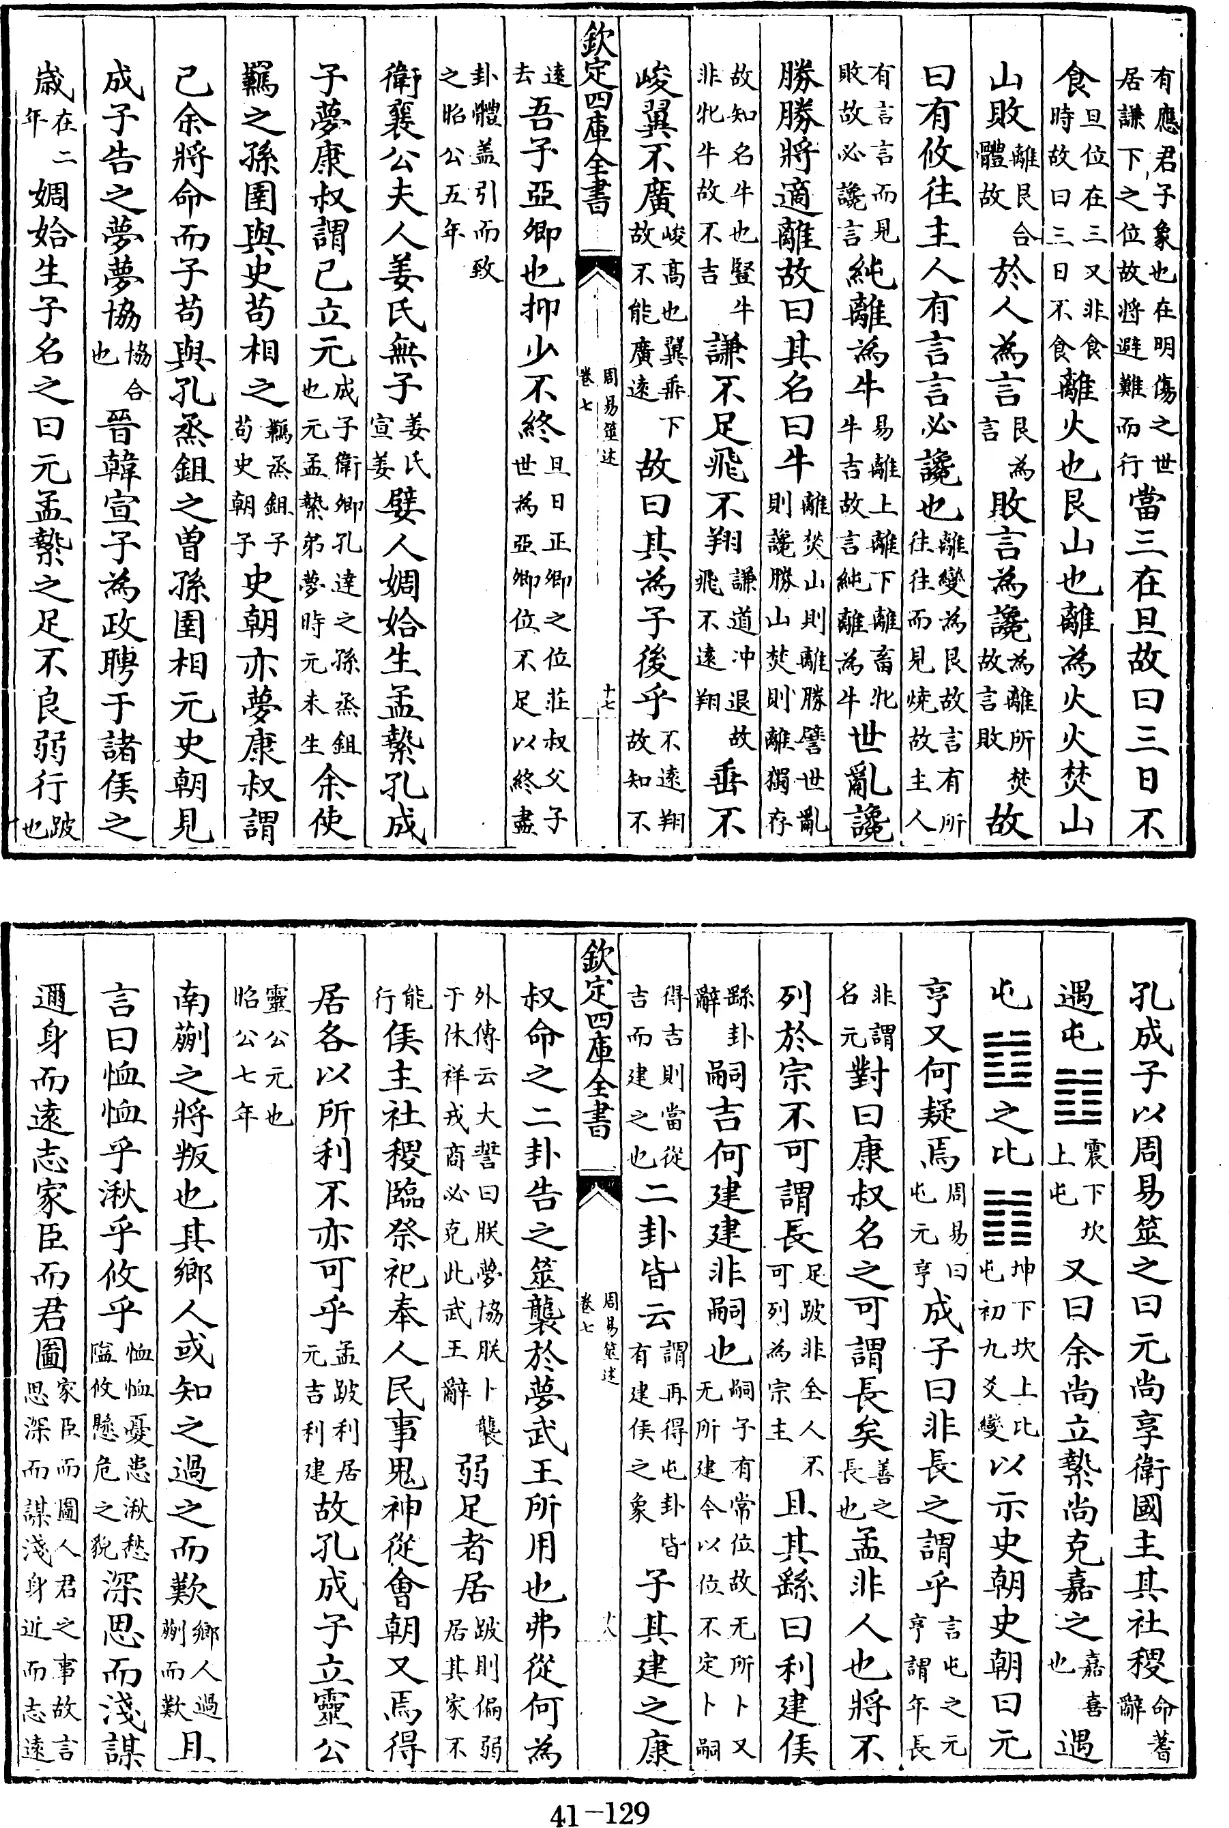 有應君子象也在明傷之世居謙下之位故將避難而行當三在旦故曰三日不
食旦位在三又非食時故曰三日不食離火也艮山也離為火火焚山
山敗離艮合體故於人為言艮為言敗言為讒為離所焚故言敗故
曰有攸往主人有言言必讒也離變為艮故言有所往往而見燒故主人
有言言而見敗故必讒言純離為牛易離上離下離畜牝牛牛吉故言純離為牛世亂讒
勝勝將適離故曰其名曰牛離焚山則離勝譬世亂則讒勝山焚則離獨存
故知名牛也豎牛非牝牛故不吉謙不足飛不翔謙道冲退故飛不遠翔垂不
峻翼不廣峻高也翼垂下故不能廣遠故曰其為子後乎不遠翔故知不
欽定四庫全書 周易筮述 卷七 十七
遠去吾子亞卿也抑少不終旦日正卿之位莊叔父子世為亞卿位不足以終盡
卦體蓋引而致之昭公五年
衛襄公夫人姜氏無子姜氏宣姜嬖人婤姶生孟縶孔成
子夢康叔謂己立元成子衛卿孔達之孫烝鉏也元孟縶弟夢時元未生余使
羈之孫圉與史苟相之羈烝鉏子苟史朝子史朝亦夢康叔謂
己余將命而子苟與孔烝鉏之曽孫圉相元史朝見
成子告之夢夢協協合也晉韓宣子為政聘于諸侯之
歲在二年婤姶生子名之曰元孟縶之足不良弱行跛也
孔成子以周易筮之曰元尚享衛國主其社稷命蓍辭
遇屯䷂震下坎上屯又曰余尚立縶尚克嘉之嘉喜也遇
屯䷂之比䷇坤下坎上比屯初九爻變以示史朝史朝曰元
亨又何疑焉周易曰屯元亨成子曰非長之謂乎言屯之元亨謂年長
非謂名元對曰康叔名之可謂長矣善之長也孟非人也將不
列於宗不可謂長足跛非全人不可列為宗主且其繇曰利建侯
繇卦辭嗣吉何建建非嗣也嗣子有常位故无所卜又无所建今以位不定卜嗣
得吉則當從吉而建之也二卦皆云謂再得屯卦皆有建侯之象子其建之康
欽定四庫全書 周易筮述 卷七 十八
叔命之二卦告之筮襲於夢武王所用也弗從何為
外傳云大誓曰朕夢協朕卜襲于休祥戎商必克此武王辭弱足者居跛則偏弱居其家不
能行侯主社稷臨祭祀奉人民事鬼神從會朝又焉得
居各以所利不亦可乎孟跛利居元吉利建故孔成子立靈公
靈公元也昭公七年
南蒯之將叛也其鄉人或知之過之而歎鄉人過蒯而歎且
言曰恤恤乎湫乎攸乎恤恤憂患湫愁隘攸懸危之貌深思而淺謀
邇身而遠志家臣而君圖家臣而圖人君之事故言思深而謀淺身近而志遠
41-129